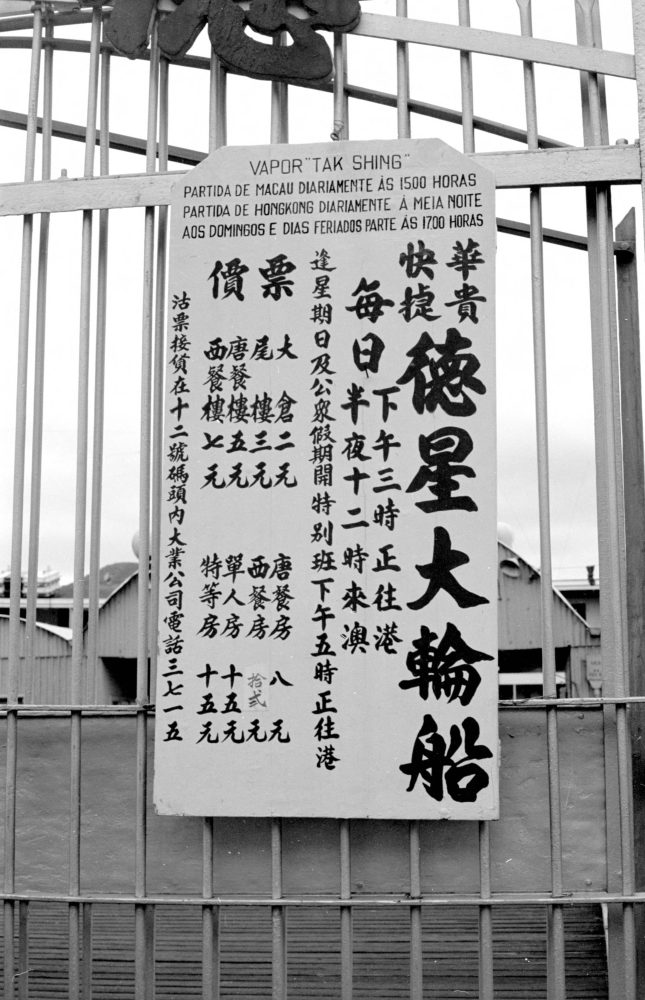 VAPOR "TAK SHING"
PARTIDA DE MACAU DIARIAMENTE ÀS 1500 HORAS
PARTIDA DE HONGKONG DIARIAMENTE À MEIA NOITE
AOS DOMINGOS E DIAS FERIADOS PARTE ÀS 17.00 HORAS
華貴
快捷
德星大輪船
每日
下午三時正往港
半夜十二時來澳
逢星期日及公眾假期開特别班下午五時正往港
票價
大倉二元
尾樓三元
唐餐樓五元
西餐樓七元
唐餐房八元
西餐房拾弍元
單人房十五元
特等房十五元
沽票接貨在十二號碼頭内大業公司電話三七一五